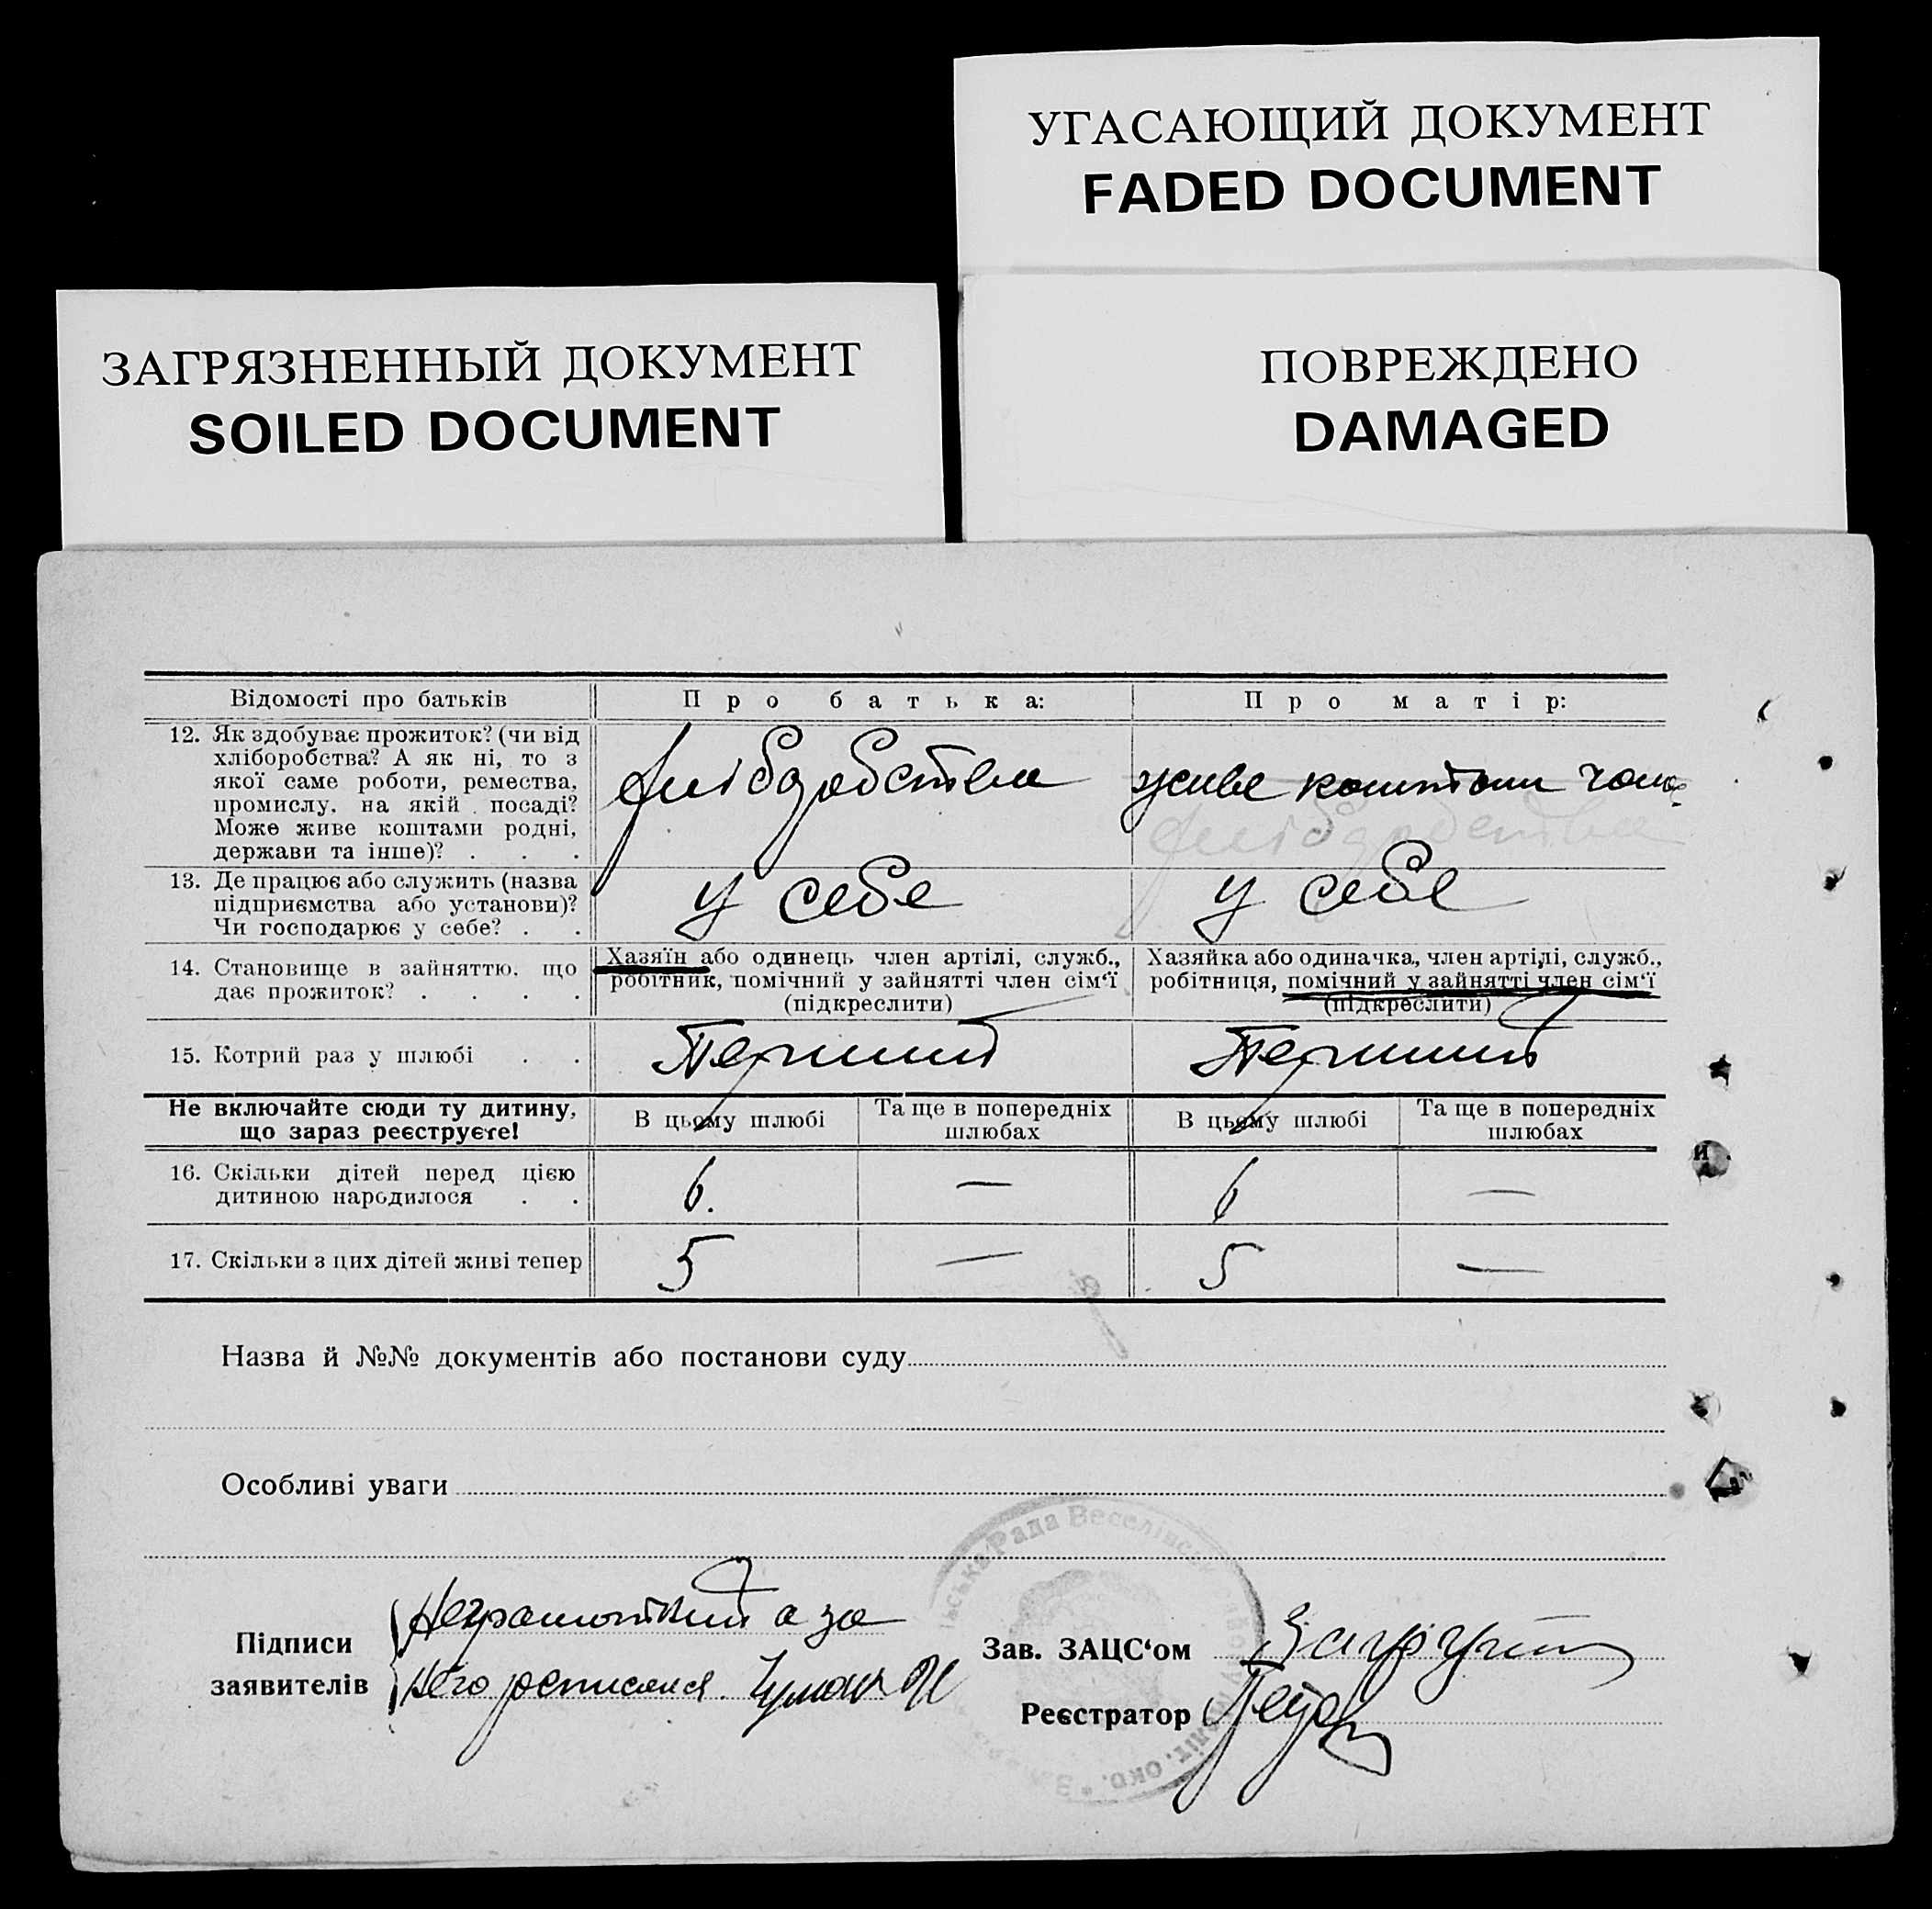 УГАСАЮЩИЙ ДОКУМЕНТ
FADED DOCUMENT
ЗАГРЯЗНЕННЫЙ ДОКУМЕНТ
SOILED DOCUMENT
ПОВРЕЖДЕНО
DAMAGED
Відомості про батьків
Про батька:
Про матір:
12. Як здобуває прожиток? (чи від
хліборобства? А як ні, то з
якої саме роботи, ремества,
промислу, на якій посаді?
Може живе коштами родні,
держави та інше)? . . .
хліборобства
живе коштами чол
хліборобства
13. Де працює або служить (назва
підприємства або установи)?
Чи господарює у себе? . .
у себе
у себе
14. Становище в зайняттю, що
дає прожиток? . . . .
Хазяїн або одинець член артілі, служб.,
робітник, помічний у зайнятті член сім‘ї
(підкреслити)
Хазяйка або одиначка, член артілі, служб.,
робітниця, помічний у зайнятті член сім‘ї
(підкреслити)
15. Котрий раз у шлюбі . .
Перший
Перший
Не включайте сюди ту дитину,
що зараз реєструєте!
В цьому шлюбі
Та ще в попередніх
шлюбах
В цьому шлюбі
Та ще в попередніх
шлюбах
16. Скільки дітей перед цією
дитиною народилося . .
6.
—
6
—
17. Скільки з цих дітей живі тепер
5
—
5
—
Назва й №№ документів або постанови суду
Особливі уваги
Підписи
заявителів
Неграмотний а за
него росписался
Зав. ЗАЦС‘ом
Реєстратор
ська Рада Веселівськ
окр.